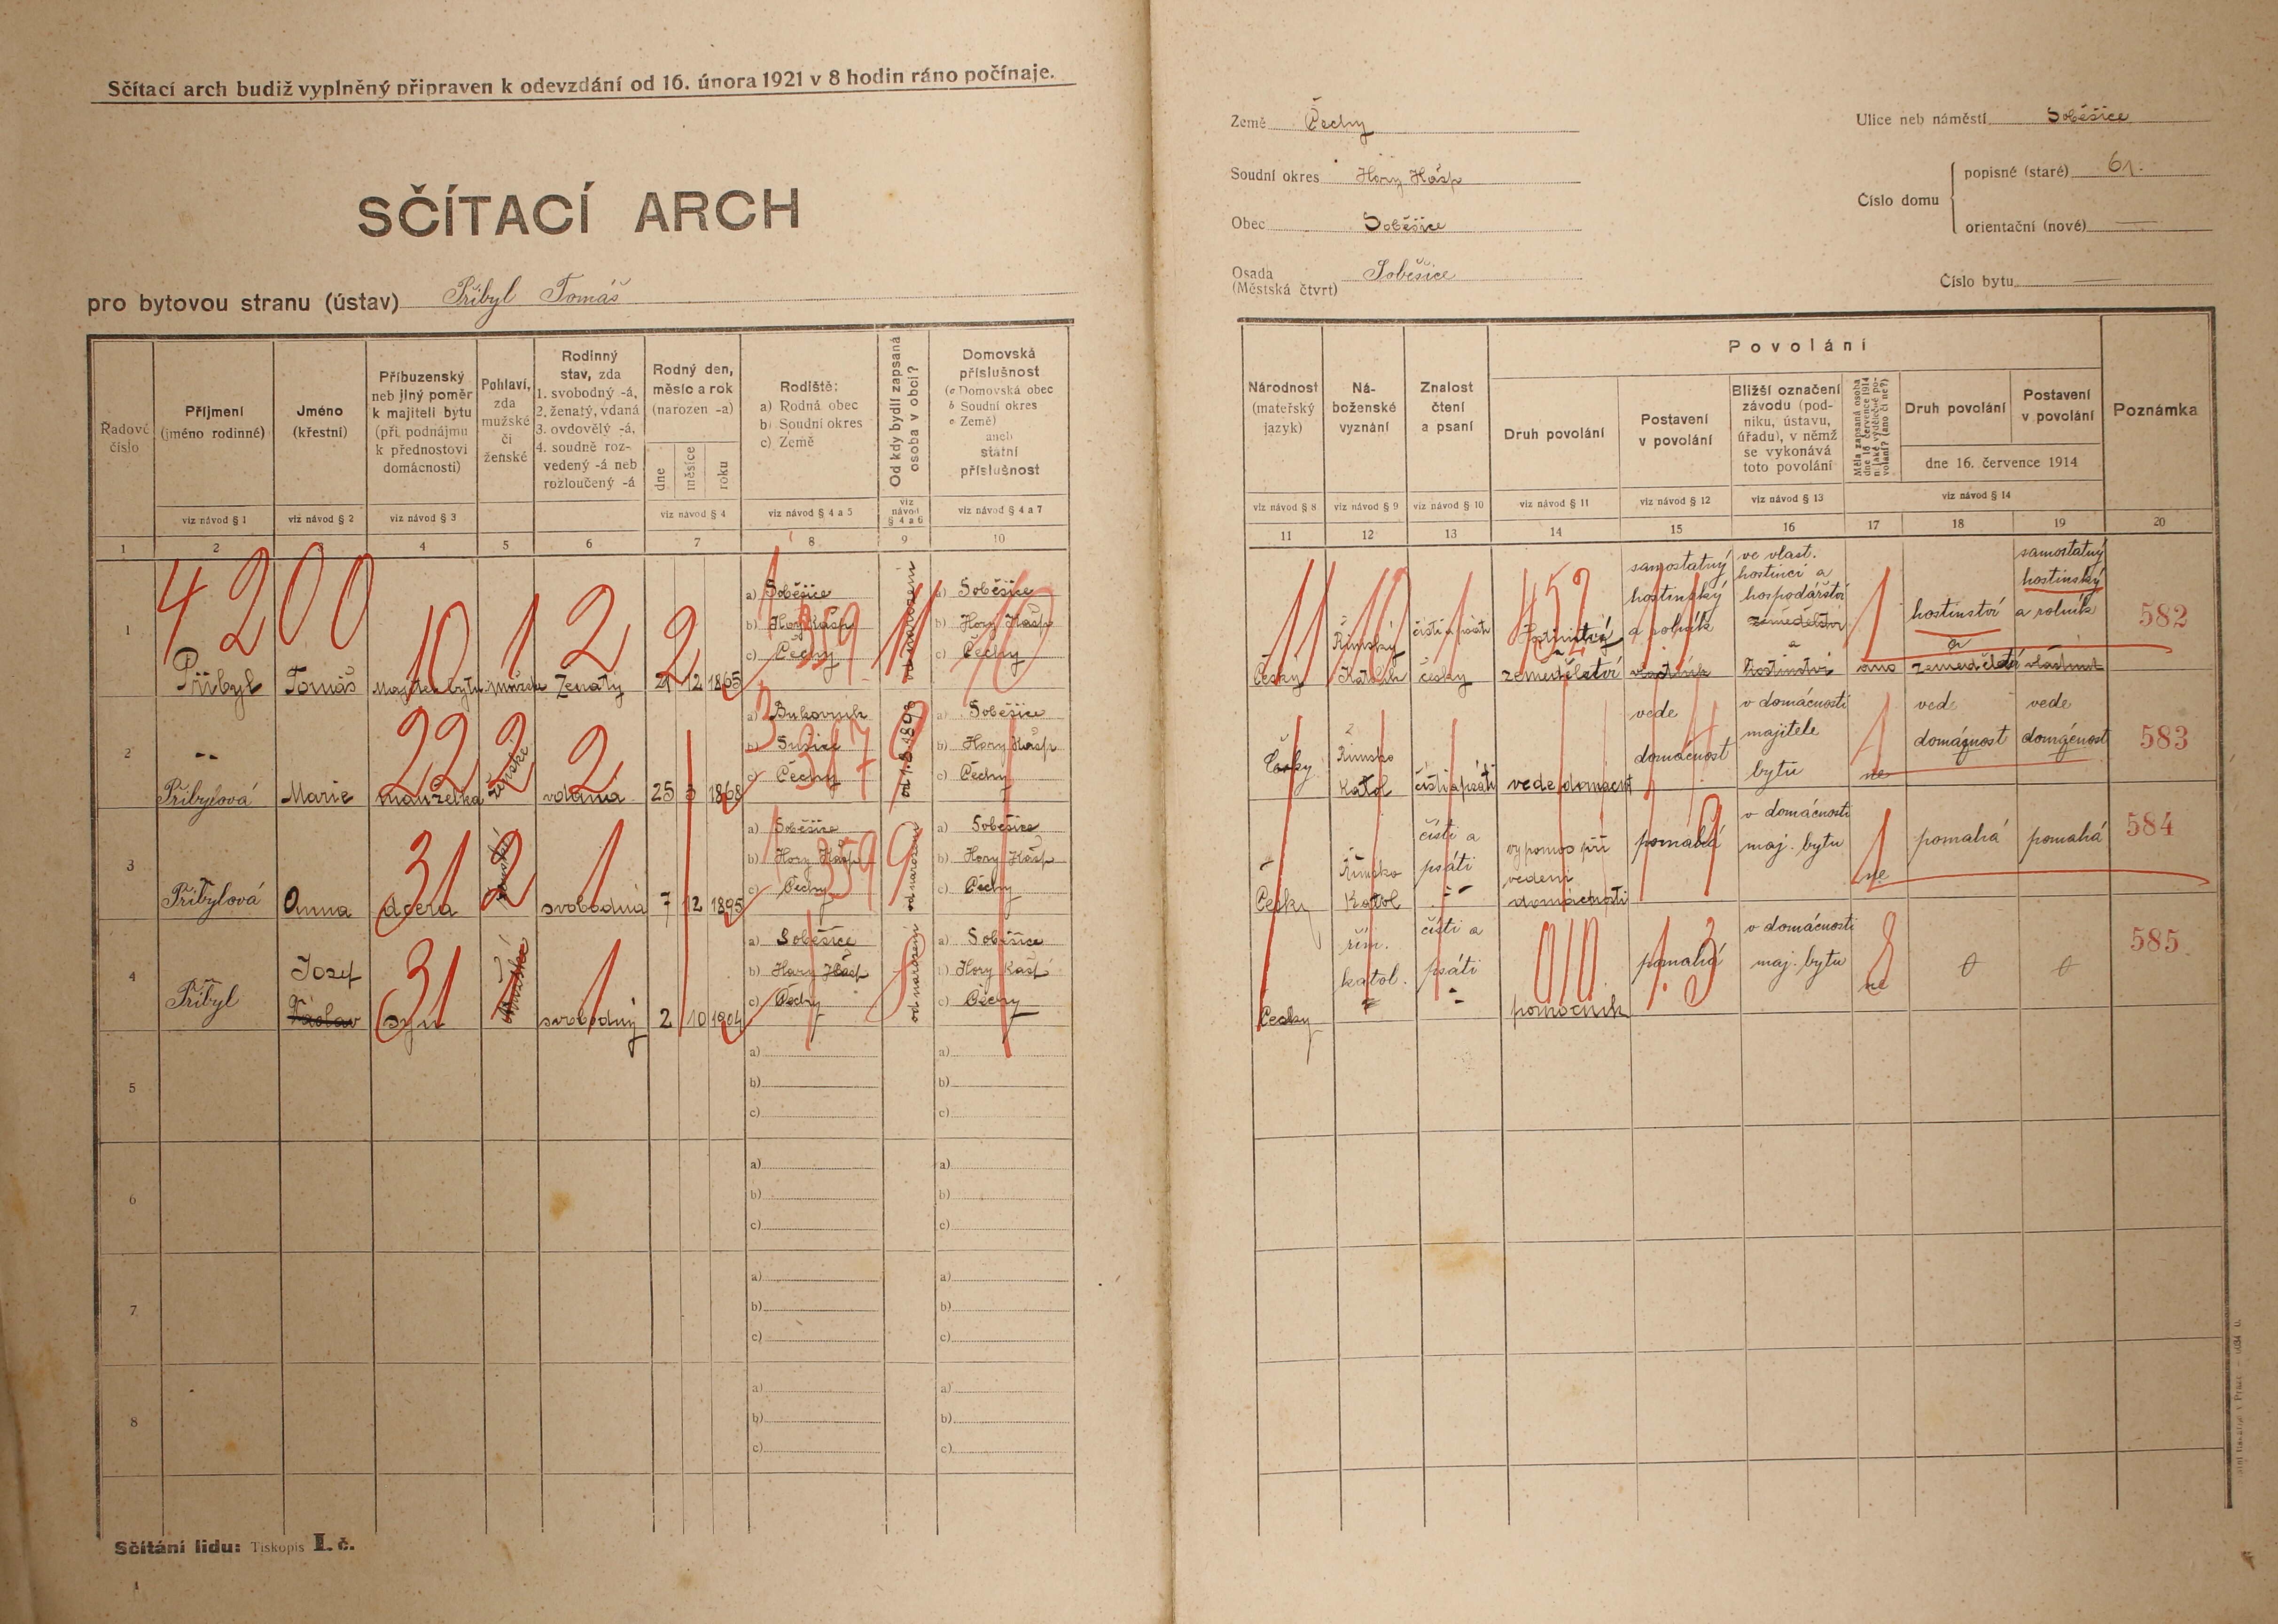 Sčítací arch budiž vyplněný připraven k odevzdání od 16. února 1921 v 8 hodin ráno počínaje.
SČÍTACÍ ARCH
pro bytovou stranu (ústav) Přibyl Tomáš
Země Čechy
Soudní okres Hory Kašp
Obec Soběšice
Osada (Městská čtvrt) Soběšice
Ulice neb náměstí Soběšice
Číslo domu
popisné (staré) 61.
orientační (nové) —
Číslo bytu —
Řadové číslo
Příjmení (jméno rodinné)
Jméno (křestní)
Příbuzenský neb jiný poměr k majiteli bytu (při podnájmu k přednostovi domácnosti)
Pohlaví, zda mužské či ženské
Rodinný stav, zda 1. svobodný -á, 2. ženatý, vdaná 3. ovdovělý -á, 4. soudně rozvedený -á neb rozloučený -á
Rodný den, měsíc a rok (narozen -a)
dne měsíce roku
Rodiště: a) Rodná obec b) Soudní okres c) Země
Od kdy bydlí zapsaná osoba v obci?
Domovská příslušnost (a Domovská obec b Soudní okres c Země) aneb státní příslušnost
viz návod § 1 viz návod § 2 viz návod § 3 viz návod § 4 viz návod § 4 a 5 viz návod § 4 a 6 viz návod § 4 a 7
1 2 3 4 5 6 7 8 9 10
Národnost (mateřský jazyk)
Náboženské vyznání
Znalost čtení a psaní
Povolání
Druh povolání
Postavení v povolání
Bližší označení závodu (podniku, ústavu, úřadu), v němž se vykonává toto povolání
Měla zapsaná osoba dne 16 července 1914 nějaké výdělečné povolání? (ano či ne?)
Druh povolání
Postavení v povolání
dne 16. července 1914
Poznámka
viz návod § 8 viz návod § 9 viz návod § 10 viz návod § 11 viz návod § 12 viz návod § 13 viz návod § 14
11 12 13 14 15 16 17 18 19 20
4200 10 1 2 2 1 359 11 10
1 Přibyl Tomáš Majitel bytu mužské Ženatý 21 12 1865
a) Soběšice
b) Hory Kašp
c) Čechy
od narození
a) Soběšice
b) Hory Kašp
c) Čechy
Český
Římsky Katolik
čísti a psáti česky
Hostinství a zemědělství
samostatný hostinský a rolník
ve vlast. hostinci a hospodářství
zemědělství a hostinství
ano
hostinství a zemědělství
samostatný hostinský a rolník
582
2 -„- Přibylová Marie manželka ženské vdaná 25 3 1868
a) Bukovník
b) Sušice
c) Čechy
a) Soběšice
b) Hory Kašp
c) Čechy
Česky
Římsko Katol
čísti a psáti
vede domácnost
vede domácnost
v domácnosti majitele bytu
ne
vede domácnost
vede domácnost
583
3 Přibylová Anna dcera ženské svobodná 7 12 1895
a) Soběšice
b) Hory Kašp
c) Čechy
od narození
a) Soběšice
b) Hory Kašp
c) Čechy
Česky
Římsko Katol
čísti a psáti
vypomos při vedení domácnosti
pomáhá
v domácnosti maj. bytu
ne
pomahá
pomahá
584
4 Přibyl Josef syn mužské svobodný 2 10 1904
a) Soběšice
b) Hory Kašp
c) Čechy
od narození
a) Soběšice
b) Hory Kašp
c) Čechy
Česky
řím. katol.
čísti a psáti
pomocník
pomahá
v domácnosti maj. bytu
ne
0
0
585
5
a)
b)
c)
a)
b)
c)
6
a)
b)
c)
a)
b)
c)
7
a)
b)
c)
a)
b)
c)
8
a)
b)
c)
a)
b)
c)
Sčítání lidu: Tiskopis I. č.